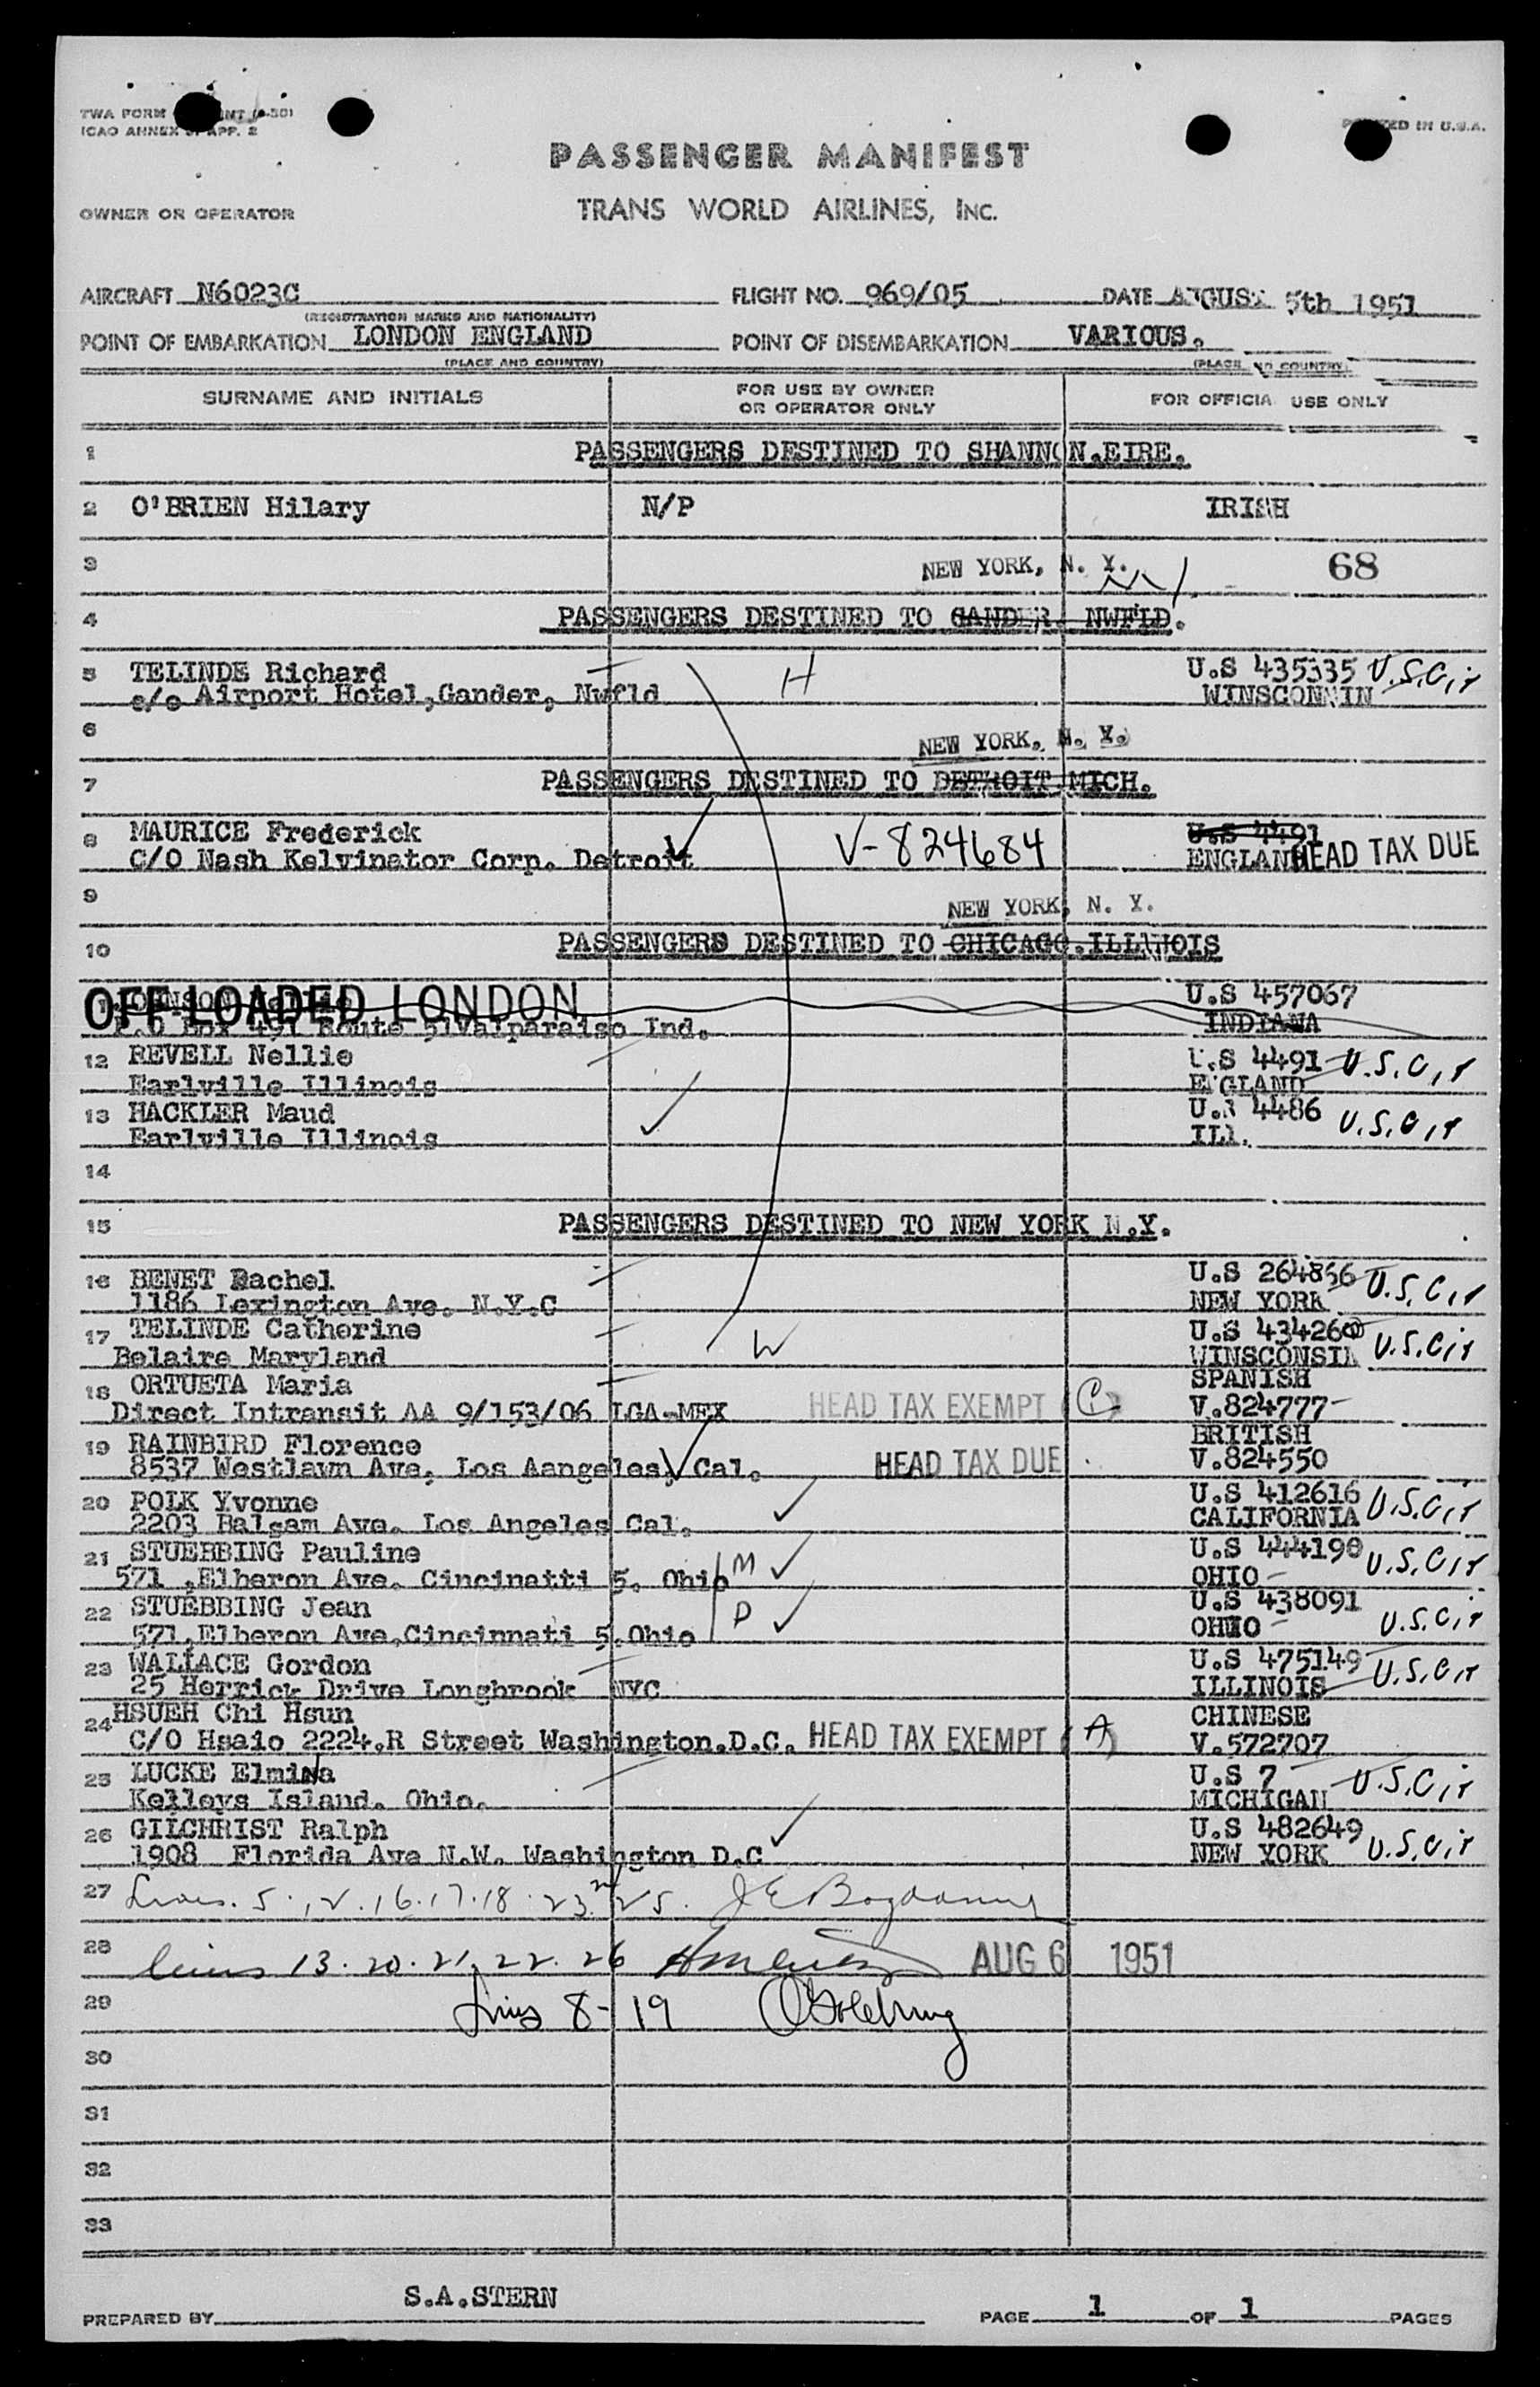 TWA FORM
ICAO ANNEX 9, APP. 2
PRINTED IN U.S.A.
PASSENGER MANIFEST
OWNER OR OPERATOR
TRANS WORLD AIRLINES, INC.
AIRCRAFT N6023C FLIGHT NO. 969/05 DATE AUGUST 5th 1951
(REGISTRATION MARKS AND NATIONALITY)
POINT OF EMBARKATION LONDON ENGLAND POINT OF DISEMBARKATION VARIOUS.
(PLACE AND COUNTRY) (PLACE AND COUNTRY)
SURNAME AND INITIALS FOR USE BY OWNER OR OPERATOR ONLY FOR OFFICIAL USE ONLY
1 PASSENGERS DESTINED TO SHANNON.EIRE.
2 O'BRIEN Hilary N/P IRISH
3 NEW YORK, N. Y. 68
4 PASSENGERS DESTINED TO GANDER. NWFLD.
5 TELINDE Richard H U.S 435335 U.S.Cit
c/o Airport Hotel,Gander, Nwfld WINSCONSIN
6 NEW YORK, N. Y.
7 PASSENGERS DESTINED TO DETROIT MICH.
8 MAURICE Frederick V-824684 U.S 4491
C/O Nash Kelvinator Corp. Detroit ENGLAND HEAD TAX DUE
9 NEW YORK, N. Y.
10 PASSENGERS DESTINED TO CHICAGO.ILLINOIS
OFF LOADED LONDON U.S 457067
P.O Box 491 Route 51Valparaiso Ind. INDIANA
12 REVELL Nellie U.S 4491 U.S.Cit
Earlville Illinois ENGLAND
13 HACKLER Maud U.S 4486 U.S.Cit
Earlville Illinois Ill.
14
15 PASSENGERS DESTINED TO NEW YORK N.Y.
16 BENET Rachel U.S 264856 U.S.Cit
1186 Lexington Ave. N.Y.C NEW YORK
17 TELINDE Catherine W U.S 434260 U.S.Cit
Belaire Maryland WINSCONSIN
18 ORTUETA Maria SPANISH
Direct Intransit AA 9/153/06 LGA-MEX HEAD TAX EXEMPT (C) V.824777
19 RAINBIRD Florence BRITISH
8537 Westlawn Ave, Los Aangeles, Cal. HEAD TAX DUE V.824550
20 POLK Yvonne U.S 412616 U.S.Cit
2203 Balsam Ave. Los Angeles Cal. CALIFORNIA
21 STUEBBING Pauline M U.S 444190 U.S.Cit
571 ,Elberon Ave. Cincinatti 5. Ohio OHIO
22 STUEBBING Jean D U.S 438091
571,Elberon Ave,Cincinnati 5.Ohio OHIO U.S.Cit
23 WALLACE Gordon U.S 475149 U.S.Cit
25 Herrick Drive Longbrook NYC ILLINOIS
24 HSUEH Chi Hsun CHINESE
C/O Hsaio 2224,R Street Washington.D.C. HEAD TAX EXEMPT (A) V.572707
25 LUCKE Elmina U.S 7 U.S.Cit
Kelleys Island. Ohio. MICHIGAN
26 GILCHRIST Ralph U.S 482649
1908 Florida Ave N.W. Washington D.C NEW YORK U.S.Cit
27 Lines. 5. 12. 16. 17. 18. 23. 25.
28 lines 13. 20. 21, 22. 26 AUG 6 1951
29 Lines 8- 19
30
31
32
33
PREPARED BY S.A.STERN PAGE 1 OF 1 PAGES